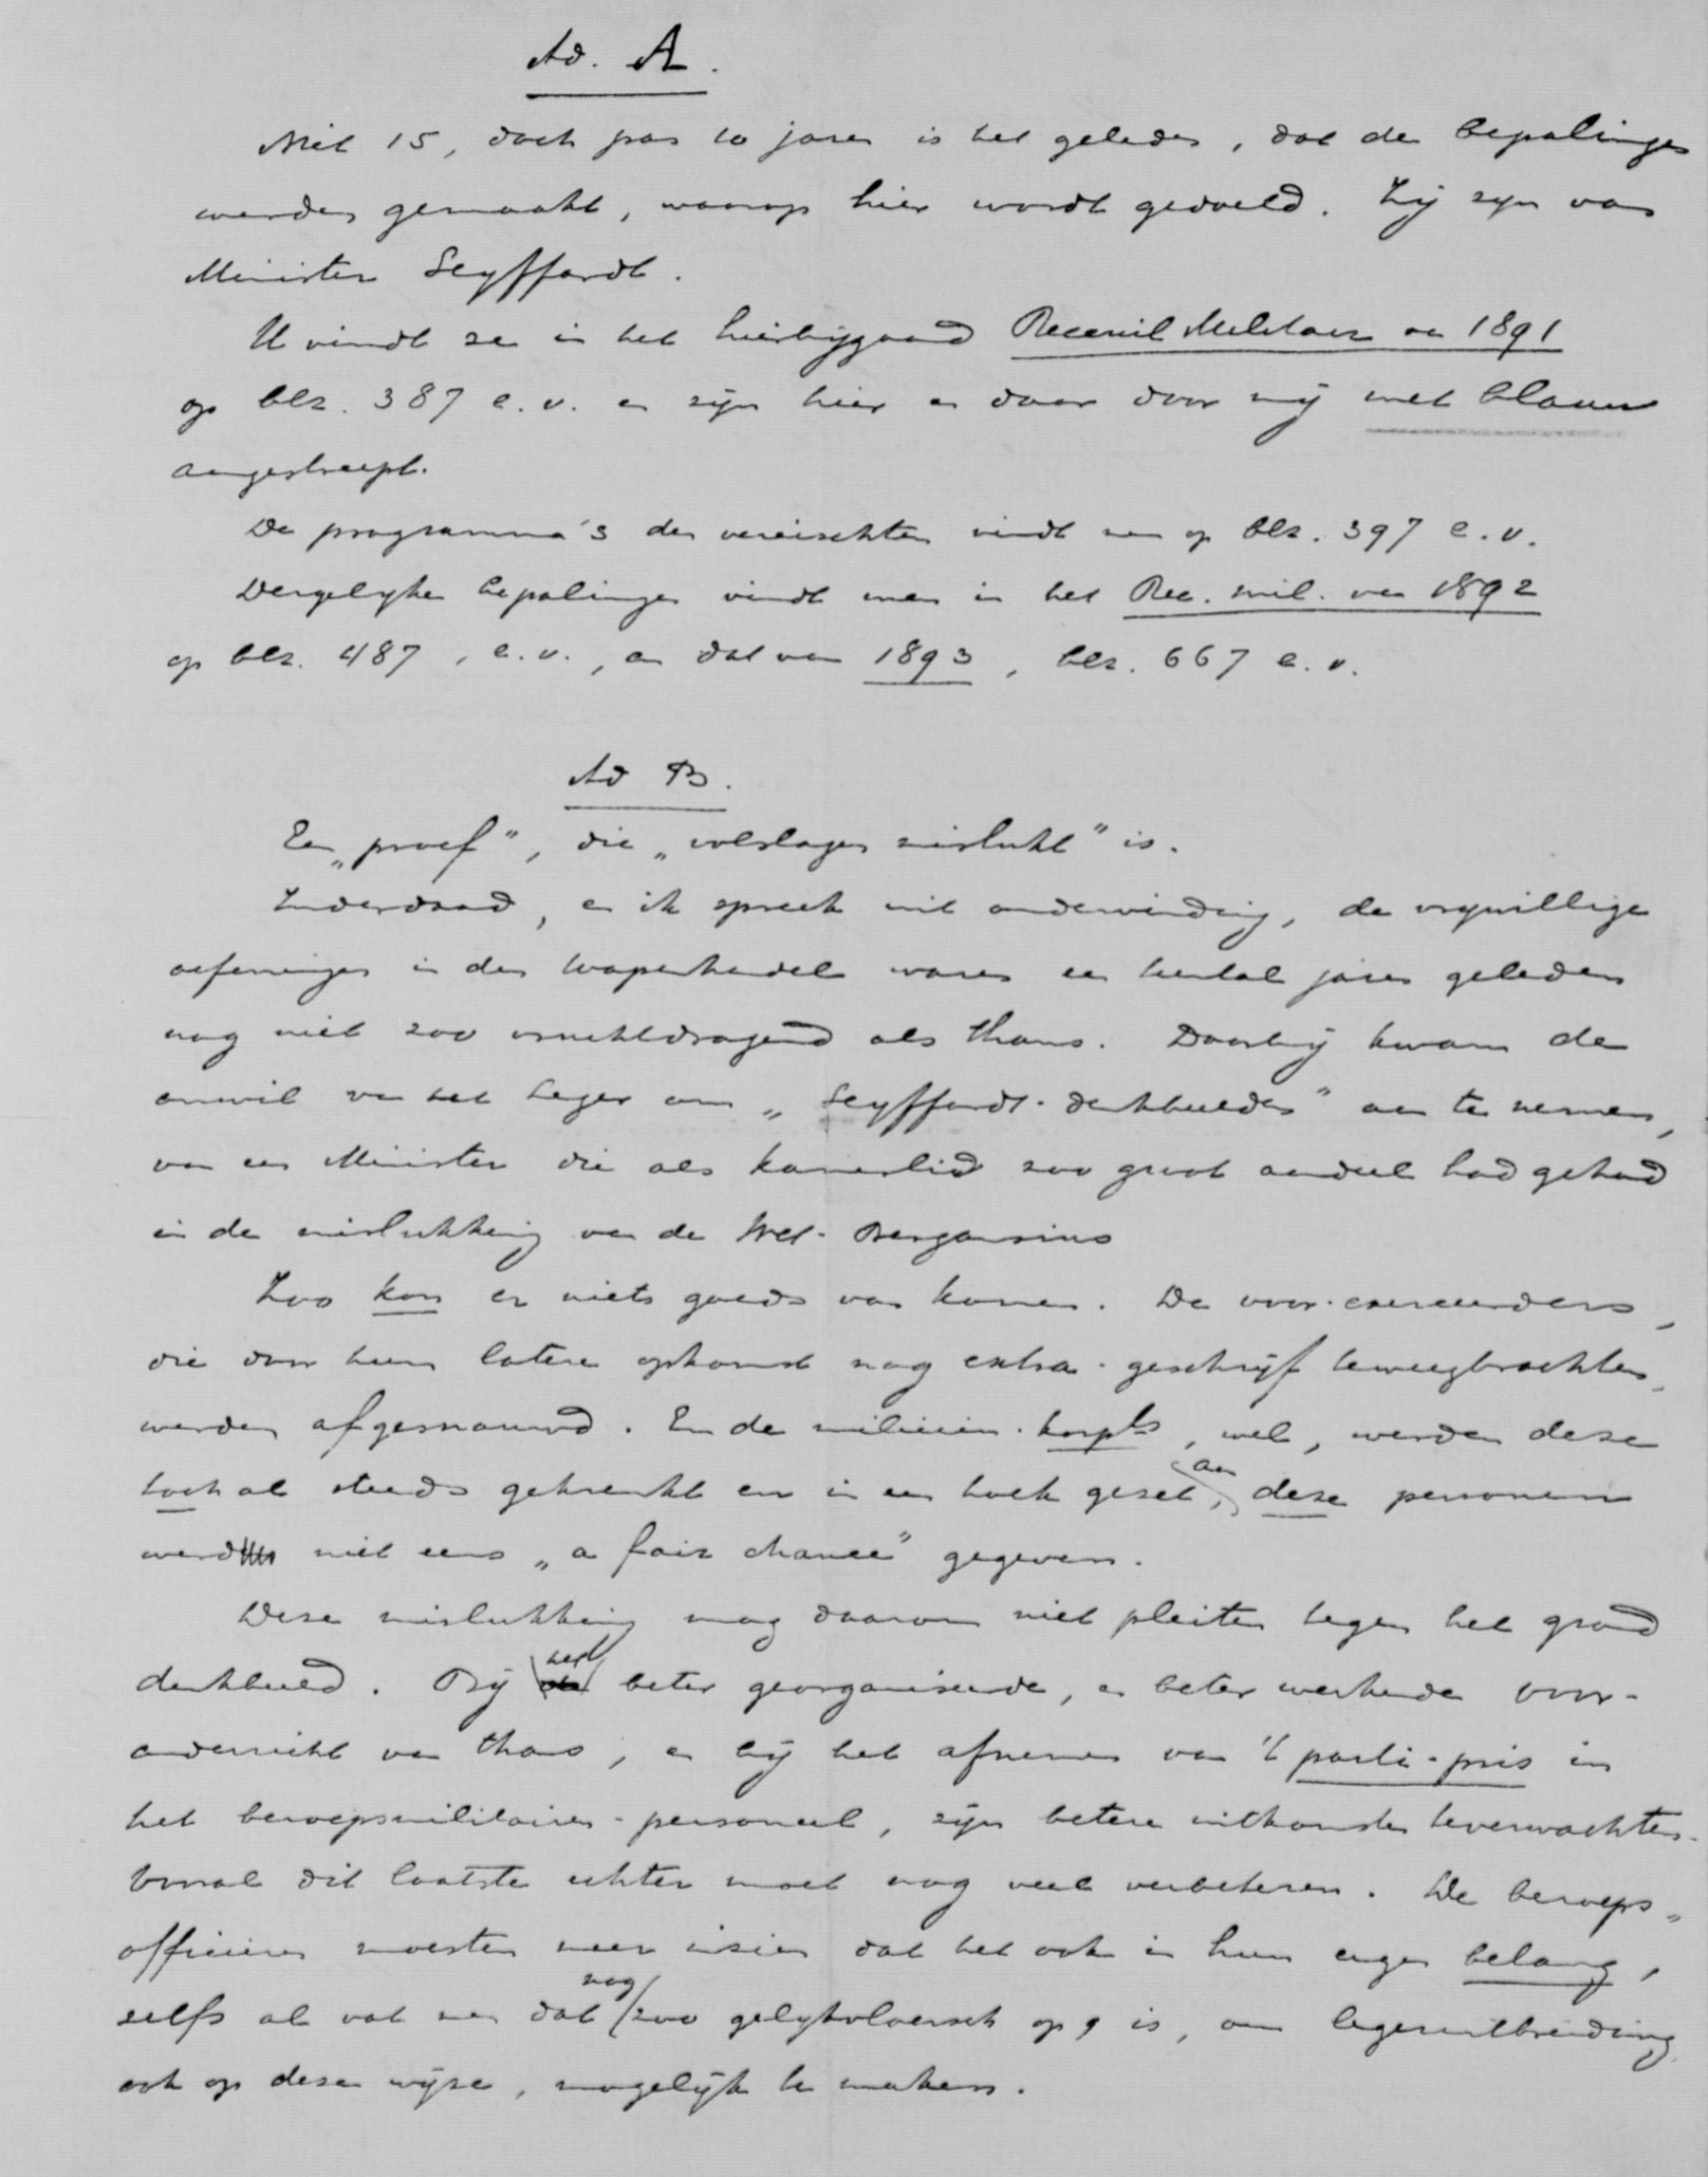 Ad. A.
Niet 15, doch pas 10 jaren is het geleden, dat de bepalingen
werden gemaakt, waarop hier wordt gedoeld. Zij zijn van
Minister Seyffardt.
U vindt ze in het hierbijgaand Recueil Militair van 1891
op blz. 387 e.v. en zijn hier en daar door mij met blauw
aangestreept.
De programma's der vereischten vindt men op blz. 397 e.v.
Dergelijke bepalingen vindt men in het Rec. mil. van 1892
op blz. 487, e.v., en dat van 1893, blz. 667 e.v.
Ad B.
Een „proef", die „volslagen mislukt" is.
Inderdaad, en ik spreek uit ondervinding, de vrijwillige
oefeningen in den wapenhandel waren een tiental jaren geleden
nog niet zoo vruchtdragend als thans. Daarbij kwam de
onwil van het leger om „Seyffardt-denkbeelden" aan te nemen,
van een Minister die als kamerlid zoo groot aandeel had gehad
in de mislukking van de Wet-Bergansius
Zoo kon er niets goeds van komen. De voor-exerceerders,
die door hun latere opkomst nog extra-geschrijf teweegbrachten,
werden afgesnauwd. En de milicien-korpls, wel, werden deze
toch al steeds gekrenkt en in een hoek gezet, aan deze personen
werd niet eens „a fair chance" gegeven.
Deze mislukking mag daarom niet pleiten tegen het grond
denkbeeld. Bij het beter georganiseerde, en beter werkende voor-
onderricht van thans, en bij het afnemen van 't parti-pris in
het beroepsmilitairen-personeel, zijn betere uitkomsten te verwachten.
Vooral dit laatste echter moet nog veel verbeteren. De beroeps-
officieren moesten meer inzien dat het ook in hun eigen belang,
zelfs al vat men dat nog zoo gelijkvloersch op, is, om legeruitbreiding,
ook op deze wijze, mogelijk te maken.